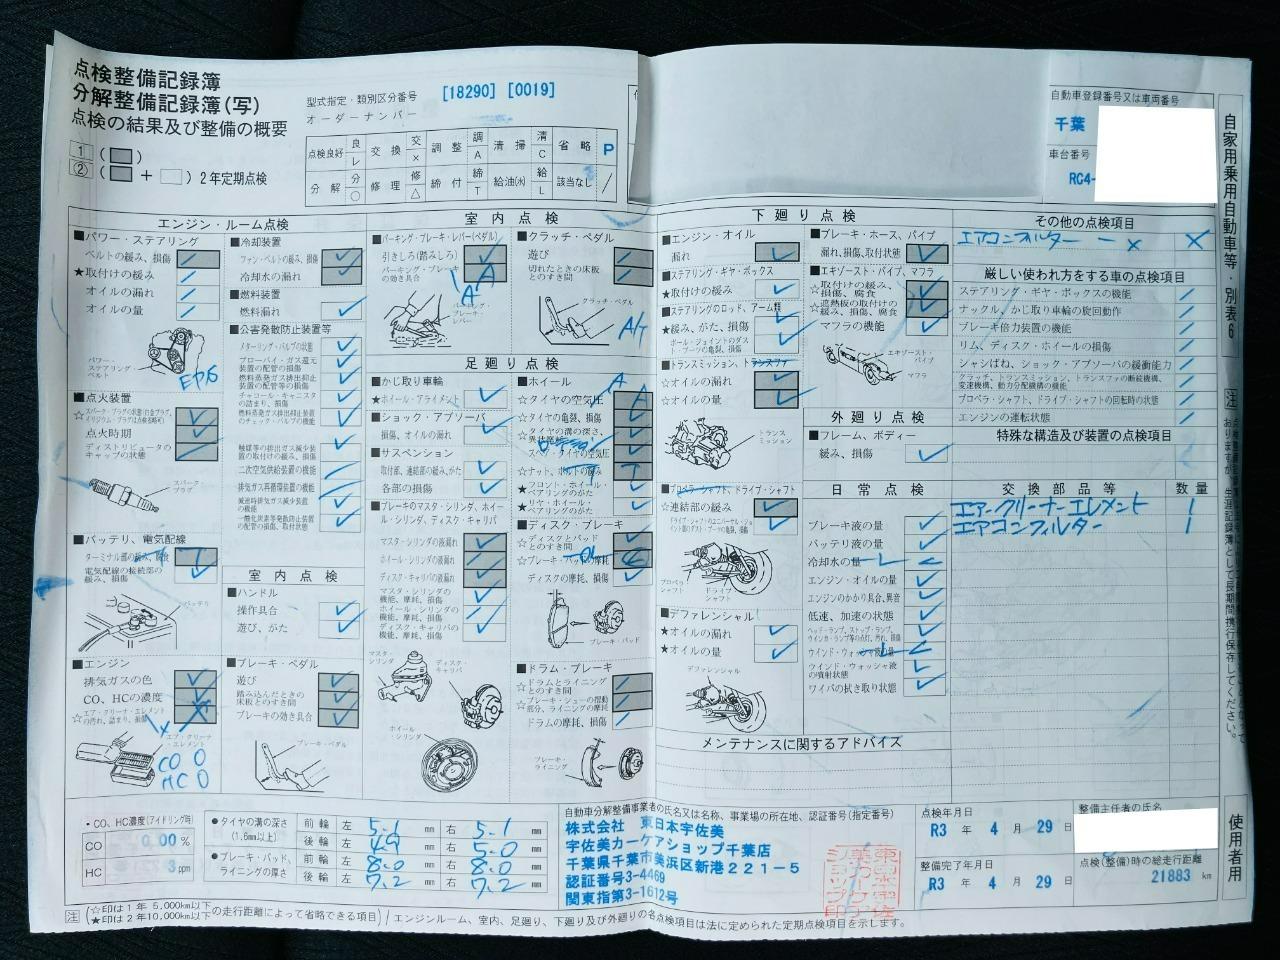 点検整備記録簿
分解整備記録簿(写)
点検の結果及び整備の概要
型式指定・類別区分番号 [18290] [0019]
オーダーナンバー
点検良好 レ 交換 × 調整 A 清掃 C 省略 P
分解 ○ 修理 △ 締付 T 給油(水) L 該当なし /
1 ( )
② ( + ) 2年定期点検
自動車登録番号又は車両番号
千葉
車台番号
RC4-
自家用乗用自動車等・別表6
エンジン・ルーム点検
■パワー・ステアリング
ベルトの緩み、損傷
★取付けの緩み
オイルの漏れ
オイルの量
パワー・ステアリング・ベルト
EPS
■点火装置
☆スパーク・プラグの状態
点火時期
ディストリビュータのキャップの状態
スパーク・プラグ
■バッテリ、電気配線
ターミナル部の緩み、腐食
電気配線の接続部の緩み、損傷
バッテリ
■エンジン
排気ガスの色
CO、HCの濃度
☆エア・クリーナ・エレメントの汚れ、詰まり、損傷
エア・クリーナ・エレメント
CO 0
HC 0
■冷却装置
ファン・ベルトの緩み、損傷
冷却水の漏れ
■燃料装置
燃料漏れ
■公害発散防止装置等
メターリング・バルブの状態
ブローバイ・ガス還元装置の配管の損傷
燃料蒸発ガス排出抑止装置の配管等の損傷
チャコール・キャニスタの詰まり、損傷
燃料蒸発ガス排出抑止装置のチェック・バルブの機能
触媒等の排出ガス減少装置の取付けの緩み、損傷
二次空気供給装置の機能
排気ガス再循環装置の機能
減速時排気ガス減少装置の機能
一酸化炭素等発散防止装置の配管の損傷、取付状態
室内点検
■ハンドル
操作具合
遊び、がた
■ブレーキ・ペダル
遊び
踏み込んだときの床板とのすき間
ブレーキの効き具合
ブレーキ・ペダル
室内点検
■パーキング・ブレーキ・レバー(ペダル)
引きしろ(踏みしろ)
パーキング・ブレーキの効き具合
パーキング・ブレーキ・レバー
■クラッチ・ペダル
遊び
切れたときの床板とのすき間
クラッチ・ペダル
A/T
足廻り点検
■かじ取り車輪
★ホイール・アライメント
■ショック・アブソーバ
損傷、オイルの漏れ
■サスペンション
取付部、連結部の緩み、がた
各部の損傷
■ブレーキのマスタ・シリンダ、ホイール・シリンダ、ディスク・キャリパ
マスタ・シリンダの液漏れ
ホイール・シリンダの液漏れ
ディスク・キャリパの液漏れ
マスタ・シリンダの機能、摩耗、損傷
ホイール・シリンダの機能、摩耗、損傷
ディスク・キャリパの機能、摩耗、損傷
マスタ・シリンダ
ディスク・キャリパ
ホイール・シリンダ
■ホイール
☆タイヤの空気圧
☆タイヤの亀裂、損傷
☆タイヤの溝の深さ、異状摩耗
スペア・タイヤの空気圧
☆ナット、ボルトの緩み
★フロント・ホイール・ベアリングのがた
★リヤ・ホイール・ベアリングのがた
■ディスク・ブレーキ
☆ディスクとパッドとのすき間
☆ブレーキ・パッドの摩耗
ディスクの摩耗、損傷
ブレーキ・パッド
■ドラム・ブレーキ
☆ドラムとライニングとのすき間
☆ブレーキ・シューの摺動部分、ライニングの摩耗
ドラムの摩耗、損傷
ブレーキ・ライニング
下廻り点検
■エンジン・オイル
漏れ
■ステアリング・ギヤ・ボックス
★取付けの緩み
■ステアリングのロッド、アーム類
★緩み、がた、損傷
ボール・ジョイントのダスト・ブーツの亀裂、損傷
■トランスミッション、トランスファ
☆オイルの漏れ
☆オイルの量
トランスミッション
■プロペラ・シャフト、ドライブ・シャフト
☆連結部の緩み
ドライブ・シャフトのユニバーサル・ジョイント部のダスト・ブーツの亀裂、損傷
プロペラ・シャフト
ドライブ・シャフト
■デファレンシャル
★オイルの漏れ
★オイルの量
デファレンシャル
■ブレーキ・ホース、パイプ
漏れ、損傷、取付状態
■エキゾースト・パイプ、マフラ
☆取付けの緩み、損傷、腐食
☆遮熱板の取付けの緩み、損傷、腐食
マフラの機能
エキゾースト・パイプ
マフラ
外廻り点検
■フレーム、ボディー
緩み、損傷
日常点検
ブレーキ液の量
バッテリ液の量
冷却水の量
エンジン・オイルの量
エンジンのかかり具合、異音
低速、加速の状態
ヘッド・ランプ、ストップ・ランプ、ウインカ・ランプ等の点灯、汚れ、損傷
ウインド・ウォッシャ液の量
ウインド・ウォッシャ液の噴射状態
ワイパの拭き取り状態
その他の点検項目
エアコンフィルター ー × ×
厳しい使われ方をする車の点検項目
ステアリング・ギヤ・ボックスの機能
ナックル、かじ取り車輪の旋回動作
ブレーキ倍力装置の機能
リム、ディスク・ホイールの損傷
シャシばね、ショック・アブソーバの緩衝能力
クラッチ、トランスミッション、トランスファの断続機構、変速機構、動力分配機構の機能
プロペラ・シャフト、ドライブ・シャフトの回転時の状態
エンジンの運転状態
特殊な構造及び装置の点検項目
交換部品等 数量
エアークリーナーエレメント 1
エアコンフィルター 1
メンテナンスに関するアドバイス
・CO、HC濃度(アイドリング時)
CO 0.00 %
HC 3 ppm
●タイヤの溝の深さ (1.6mm以上)
前輪 左 5.1 mm 右 5.1 mm
後輪 左 4.9 mm 右 5.0 mm
●ブレーキ・パッド、ライニングの厚さ
前輪 左 8.0 mm 右 8.0 mm
後輪 左 7.2 mm 右 7.2 mm
自動車分解整備事業者の氏名又は名称、事業場の所在地、認証番号(指定番号)
株式会社 東日本宇佐美
宇佐美カーケアショップ千葉店
千葉県千葉市美浜区新港221-5
認証番号3-4469
関東指第3-1612号
点検年月日
R3 年 4 月 29 日
整備完了年月日
R3 年 4 月 29 日
整備主任者の氏名
点検(整備)時の総走行距離
21883 km
使用者用
注 (☆印は1年5,000km以下の走行距離によって省略できる項目) / エンジンルーム、室内、足廻り、下廻り及び外廻りの各点検項目は法に定められた定期点検項目を示します。
(★印は2年10,000km以下